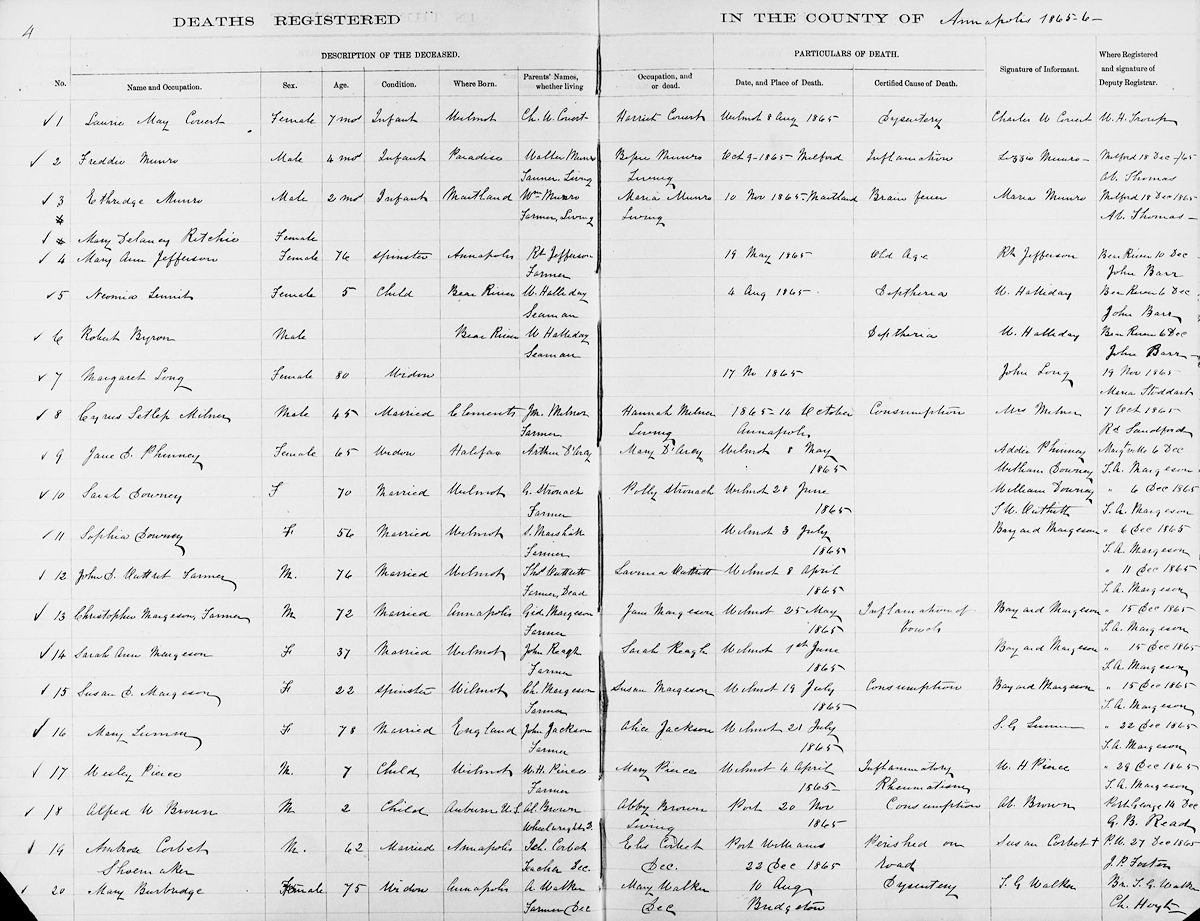 4
DEATHS REGISTERED IN THE COUNTY OF Annapolis 1865-6-
DESCRIPTION OF THE DECEASED. PARTICULARS OF DEATH.
No. Name and Occupation. Sex. Age. Condition. Where Born. Parents' Names, whether living Occupation, and or dead. Date, and Place of Death. Certified Cause of Death. Signature of Informant. Where Registered and signature of Deputy Registrar.
✓ 1 Laurie May Covert Female 7 mos Infant Wilmot Ch. W. Covert Harriet Covert Wilmot 8 Aug 1865 Dysentery Charles W Covert W. H. Troop
✓ 2 Freddie Munro Male 4 mos Infant Paradise Walter Munro Bessie Munro Oct 9-1865- Milford Inflamation Lizzie Munro- Milford 18 Dec -/65
Tanner, Living Living Ab. Thomas
✓ 3 Ethridge Munro Male 2 mos Infant Maitland Wm Munro Maria Munro 10 Nov 1865- Maitland Brain fever Maria Munro Milford 18 Dec 1865
Farmer, Living Living Ab. Thomas-
✓ Mary Delaney Ritchie Female
✓ 4 Mary Ann Jefferson Female 76 Spinster Annapolis Rt Jefferson 19 May 1865 Old Age Rt Jefferson Bear River 10 Dec-
Farmer John Barr
✓ 5 Neomia Female 5 Child Bear River W. Halliday 4 Aug 1865 Diptheria W. Halliday Bear River 6 Dec
Seaman John Barr
✓ 6 Robert Byron Male Bear River W Halliday Diptheria W. Halliday Bear River 6 Dec
Seaman John Barr
✓ 7 Margaret Long Female 80 Widow 17 No 1865 John Long 19 Nov 1865
Maria Stoddart
✓ 8 Cyrus Milner Male 45 Married Clements Jno. Milner Hannah Milner 1865-14 October Consumption Mrs Milner 7 Oct 1865
Farmer Living Annapolis Rd Sandford
✓ 9 Jane D. Phinney Female 65 Widow Halifax Arthur D'Arcy Mary D'Arcy Wilmot 8 May Addie Phinney Margtville 6 Dec
1865 William Downey T. A. Margeson
✓ 10 Sarah Downey F 70 Married Wilmot G. Stronach Polly Stronach Wilmot 28 June William Downey " 6 Dec 1865
Farmer 1865 T. A. Margeson
✓ 11 Sophia Downey F 56 Married Wilmot S. Marshall Wilmot 3 July Bayard Margeson " 6 Dec 1865
Farmer 1865 T. A. Margeson
✓ 12 John D. Farmer M. 76 Married Wilmot Thos Lavinia Wilmot 8 April " 11 Dec 1865
Farmer, Dead 1865 T. A. Margeson
✓ 13 Christopher Margeson, Farmer M 72 Married Annapolis Gid. Margeson Jane Margeson Wilmot 25 May Inflamation of Bayard Margeson " 15 Dec 1865
Farmer 1865 bowels T. A. Margeson
✓ 14 Sarah Ann Margeson F 37 Married Wilmot John Reagh Sarah Reagh Wilmot 1st June Bayard Margeson " 15 Dec 1865
Farmer 1865 T. A. Margeson
✓ 15 Susan D. Margeson F 22 Spinster Wilmot Ch. Margeson Susan Margeson Wilmot 19 July Consumption Bayard Margeson " 15 Dec 1865
Farmer 1865 T. A. Margeson
✓ 16 Mary F 78 Married England John Jackson Alice Jackson Wilmot 21 July S. G " 22 Dec 1865
Farmer 1865 T. A. Margeson
✓ 17 Wesley Pierce M. 7 Child Wilmot W. H. Pierce Mary Pierce Wilmot 4 April Inflammatory W. H Pierce " 29 Dec 1865
Farmer 1865- Rheumatism T. A. Margeson
✓ 18 Alfred W Brown M. 2 Child Auburn U.S. Ab. Brown Abby Brown Port 20 Nov Consumption Ab. Brown Port George 14 Dec
Wheelwright Living 1865 G. B. Read
✓ 19 Ambrose Corbet M. 62 Married Annapolis Ich. Corbet Elis Corbet Port Williams Perished on Susan Corbet + P.W. 27 Dec 1865
Shoemaker Teacher Dec. Dec. 22 Dec 1865 road J. P. Foster
✓ 20 Mary Burbridge Female 75 Widow Annapolis A. Walker Mary Walker 10 Aug Dysentery T. G Walker Br. T. G. Walker
Farmer Dec Dec Bridgeton Ch. Hoyt